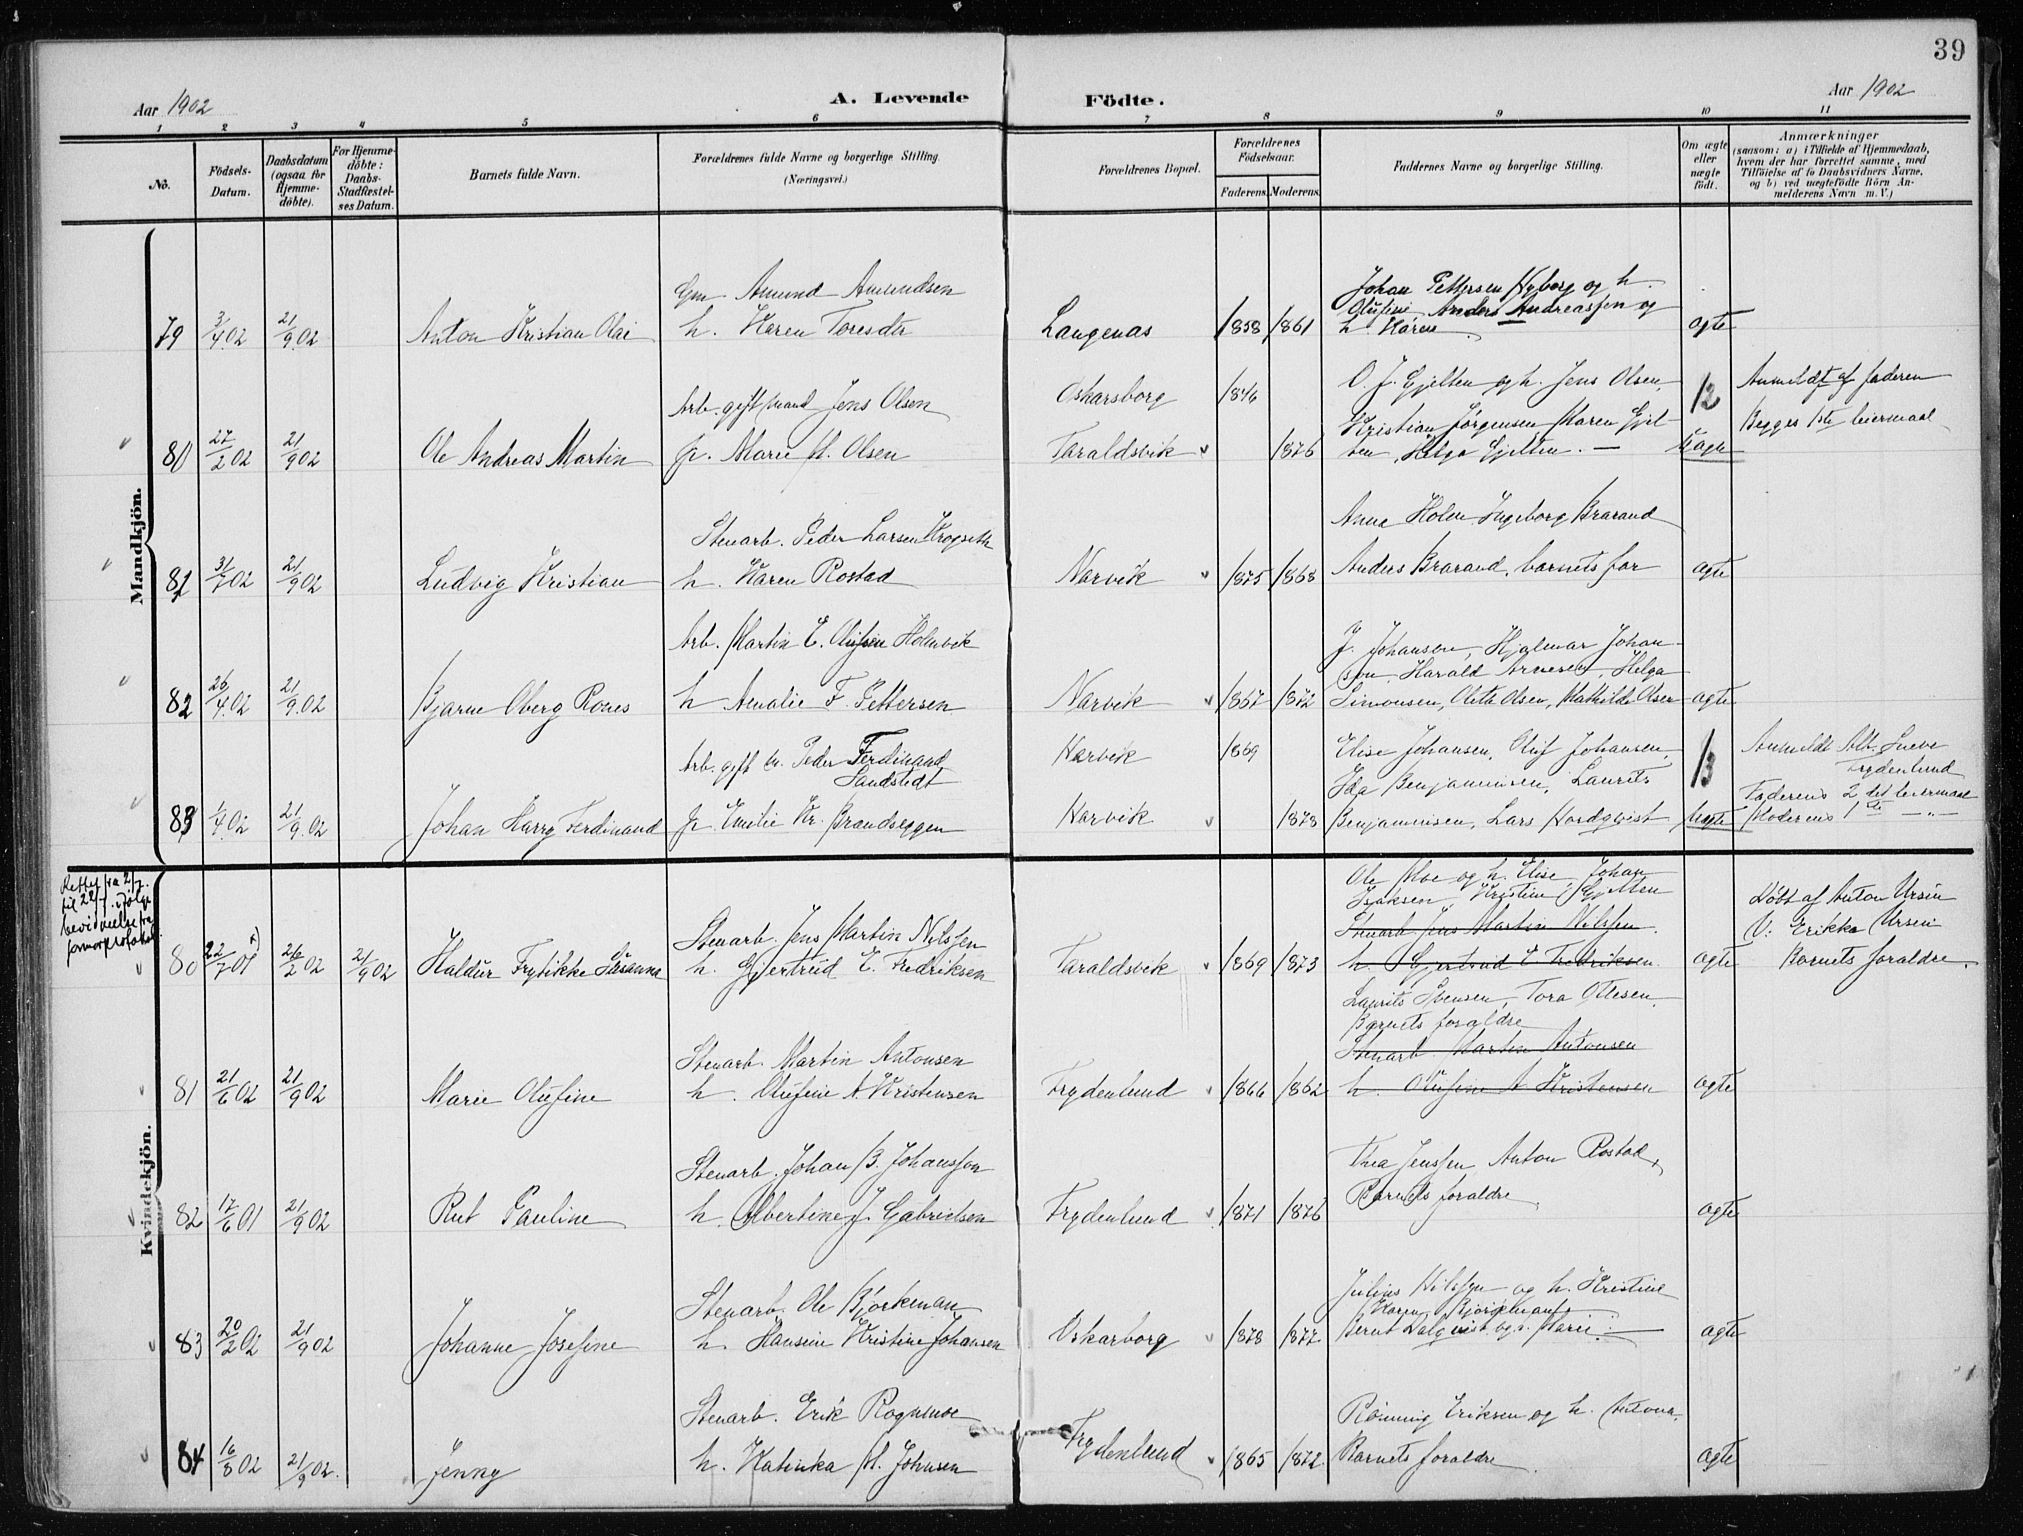 39
Aar 1902
A. Levende Födte.
Aar 1902
1 2 3 4 5 6 7 8 9 10 11
No.
Födsels-Datum.
Daabsdatum (ogsaa for Hjemme-döbte).
For Hjemme-döbte: Daabs-Stadfæstel-ses Datum.
Barnets fulde Navn.
Forældrenes fulde Navne og borgerlige Stilling.
(Næringsvei.)
Forældrenes Bopæl.
Forældrenes Födselsaar.
Faderens. Moderens.
Faddernes Navne og borgerlige Stilling.
Om ægte eller uægte födt.
Anmærkninger
(saasom: a) i Tilfælde af Hjemmedaab,
hvem der har forrettet samme, med
Tilföielse af to Daabsvidners Navne,
og b) ved uægtefödte Börn An-
melderens Navn m. V.)
Mandkjön.
Gm Amund Amundsen
Johan Pettersen Nyborg og h.
Olufine, Anders Andreassen og
79 3/4 02 21/9 02 Anton Kristian Olai h. Karen Toresdtr Langenæs 1858 1861 h. Karen ægte
Arb. gift mand Jens Olsen Oskarsborg 1846 O. J. Gjelten og h. Jens Olsen, 12 Anmeldt af faderen
Kristian Jørgensen, Maren Gjel- Begges 1ste leiermaal
80 27/2 02 21/9 02 Ole Andreas Martin p. Marie M. Olsen Taraldsvik 1876 ten, Helga Gjelten. Uægte
Stenarb. Peder Larsen Krogseth Anna Holm, Ingeborg Brarand
81 31/7 02 21/9 02 Ludvig Kristian h. Karen Rostad Narvik 1875 1868 Anders Brarand, barnets far ægte
Arb. Martin E. Olufsen Holmvik J. Johansen, Hjalmar Johan-
sen, Harald Arnesen, Helga
82 26/4 02 21/9 02 Bjarne Oberg Rones h Amalie F. Pettersen Narvik 1867 1872 Simonsen, Olete Olsen, Mathilde Olsen ægte
Arb. gift m. Peder Ferdinand Sandstedt Narvik 1869 Elise Johansen, Oluf Johansen, 13 Anmeldt Alb. Sneve Frydenlund
Ida Benjaminsen, Laurits Faderens 2det leiermaal
83 1/4 02 21/9 02 Johan Harry Ferdinand p. Emilie Kr. Brandseggen Narvik 1878 Benjaminsen, Lars Nordqvist Uægte Moderens 1ste —„—
Kvindekjön.
Rettet fra 2/7
til 22/7 ifølge
bevidnelse fra
Ole Moe og h. Elise, Johan
Isaksen, Kristine Gjelten Døbt af Anton Ursin
Stenarb. Jens Martin Nilssen Stenarb Jens Martin Nilssen. V: Erikka Ursin
80 22/7 01 x) 26/2 02 21/9 02 Haldur Frytikke Susanna h. Gjertrud E. Fredriksen Taraldsvik 1869 1873 h. Gjertrud E Fredriksen ægte Barnets foraldre.
Laurits Svensen, Tora Ottesen,
Barnets foraldre
Stenarb. Martin Antonsen Stenarb Martin Antonsen
81 21/6 02 21/9 02 Marie Olufine h. Olufine A Kristensen Frydenlund 1866 1862 h. Olufine A Kristensen ægte
Stenarb. Johan B. Johanssen Thea Jenssen, Anton Rostad,
82 17/6 01 21/9 02 Rut Pauline h. Albertine J. Gabrielsen Frydenlund 1871 1876 Barnets foraldre ægte
Stenarb. Ole Bjørkman Julius Nilssen og h. Kristine
Karen Bjørkman
83 20/2 02 21/9 02 Johanne Josefine h. Hansine Kristine Johansen Oskarborg 1878 1877 Bernt Dalqvist og h. Marie. ægte
Stenarb. Erik Rognmoe Rønning Eriksen og h. Antona,
84 16/8 02 21/9 02. Jenny h. Katinka M. Johnsen Frydenlund 1865 1872 Barnets foraldre ægte